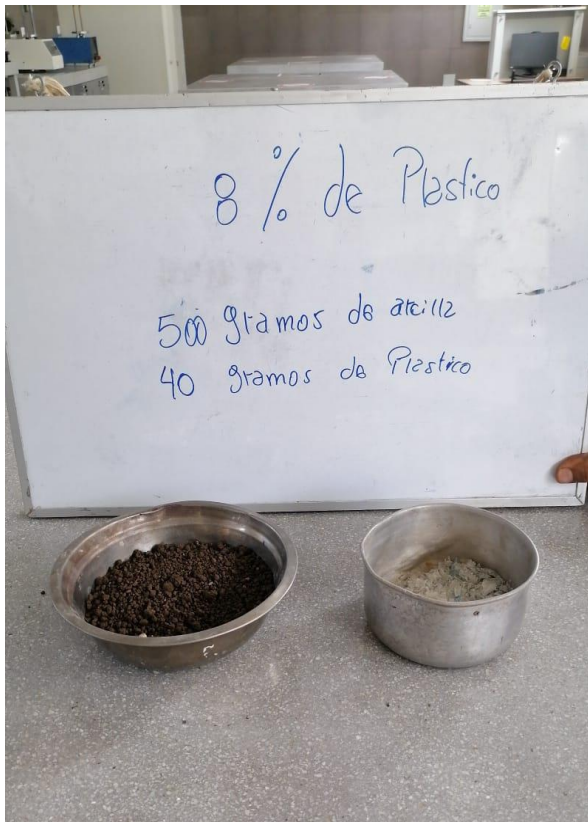 8 % de Plastico
500 gramos de arcilla
40 gramos de Plastico